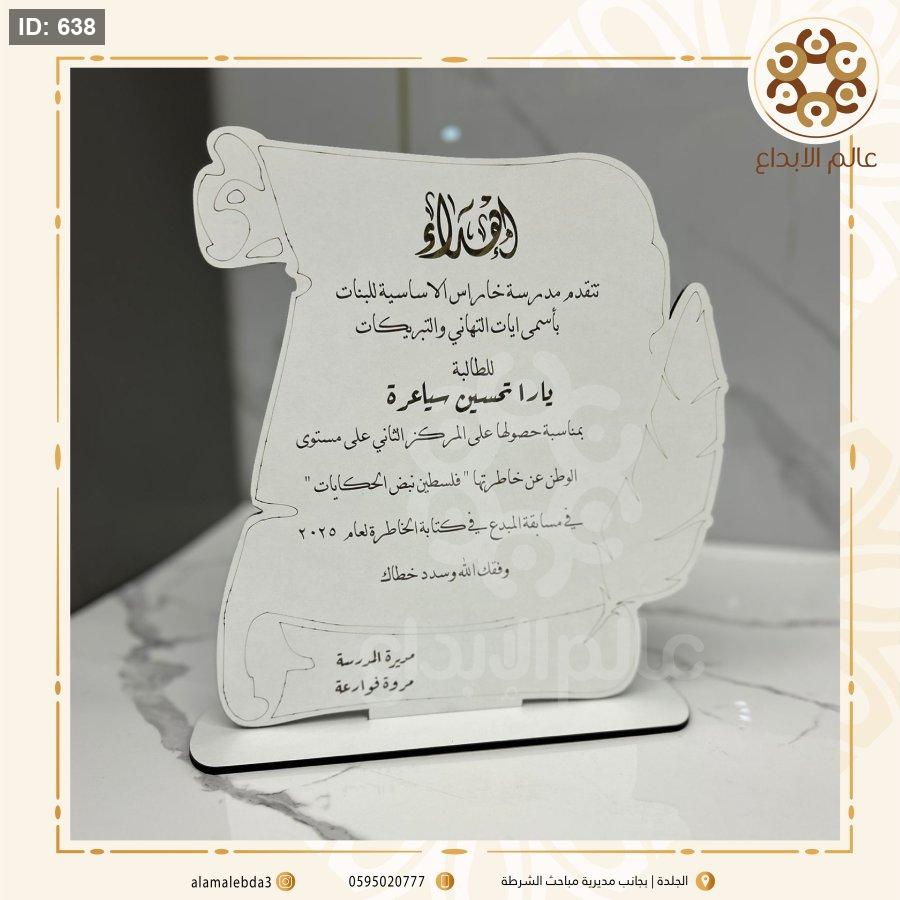 ID: 638
عالم الإبداع
إهداء
تتقدم مدرسة خاراس الاساسية للبنات
بأسمى ايات التهاني والتبريكات
للطالبة
يارا تحسين سياعرة
بمناسبة حصولها على المركز الثاني على مستوى
الوطن عن خاطرتها "فلسطين نبض الحكايات"
في مسابقة المبدع في كتابة الخاطرة لعام ٢٠٢٥
وفقك الله وسدد خطاك
مديرة المدرسة
مروة فوارعة
عالم الإبداع
الجلدة | بجانب مديرية مباحث الشرطة
0595020777
alamalebda3